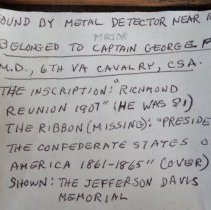 OUND BY METAL DETECTOR NEAR
MAJOR
BELONGED TO CAPTAIN GEORGE F
M.D., 6TH VA CAVALRY, CSA.
THE INSCRIPTION: "RICHMOND
REUNION 1907" (HE WAS 81)
THE RIBBON (MISSING): "PRESIDE
THE CONFEDERATE STATES O
AMERICA 1861-1865" (OVER)
SHOWN: THE JEFFERSON DAVIS
MEMORIAL